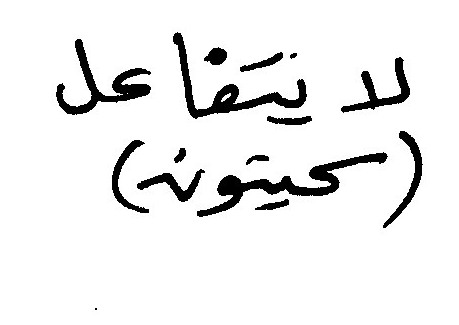 لا يتفاعل
(كيتونه)